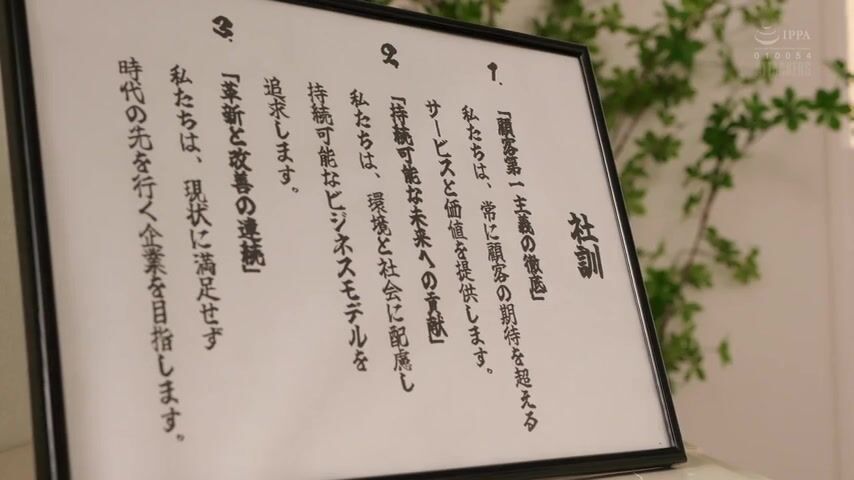 社訓
1.
「顧客第一主義の徹底」
私たちは、常に顧客の期待を超える
サービスと価値を提供します。
2.
「持続可能な未来への貢献」
私たちは、環境と社会に配慮し
持続可能なビジネスモデルを
追求します。
3.
「革新と改善の連続」
私たちは、現状に満足せず
時代の先を行く企業を目指します。
IPPA
010054